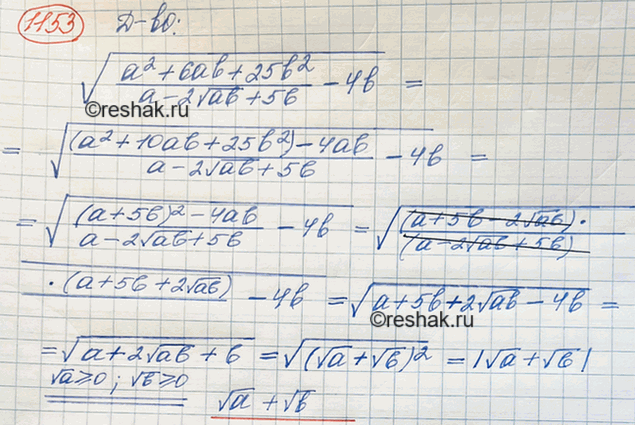 1153 Д-во:
√((a² + 6ab + 25b²)/(a - 2√ab + 5b) - 4b) =
©reshak.ru
= √(((a² + 10ab + 25b²) - 4ab)/(a - 2√ab + 5b) - 4b) =
= √(((a + 5b)² - 4ab)/(a - 2√ab + 5b) - 4b) = √((a + 5b - 2√ab) · / (a - 2√ab + 5b)
· (a + 5b + 2√ab) - 4b) = √(a + 5b + 2√ab - 4b) =
©reshak.ru
= √(a + 2√ab + b) = √((√a + √b)²) = |√a + √b|
√a ≥ 0 ; √b ≥ 0
√a + √b